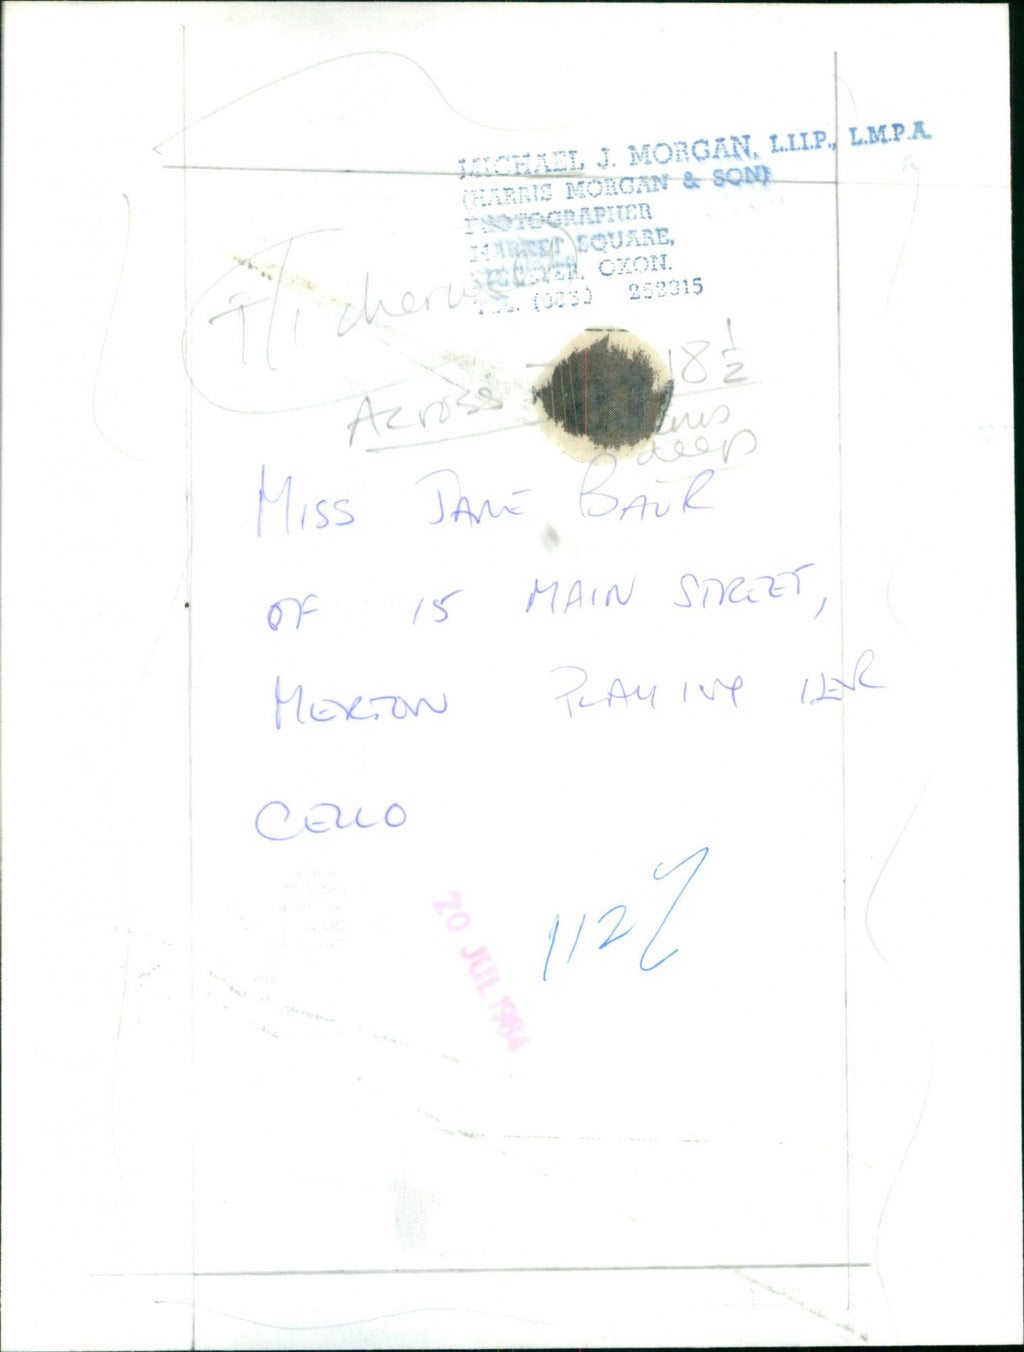 MICHAEL J. MORGAN, L.I.I.P., L.M.P.A.
(HARRIS MORGAN & SON)
PHOTOGRAPHER
MARKET SQUARE,
BICESTER, OXON.
TEL. 252315
T/T cherwell
ACROSS 18 1/2
ems
deep
MISS JANE BAUR
OF 15 MAIN STREET,
MERTON PLAYING HER
CELLO
20 JUL 1984
112%